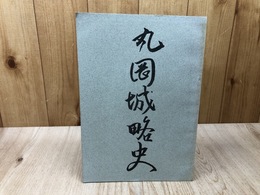 丸岡城略史